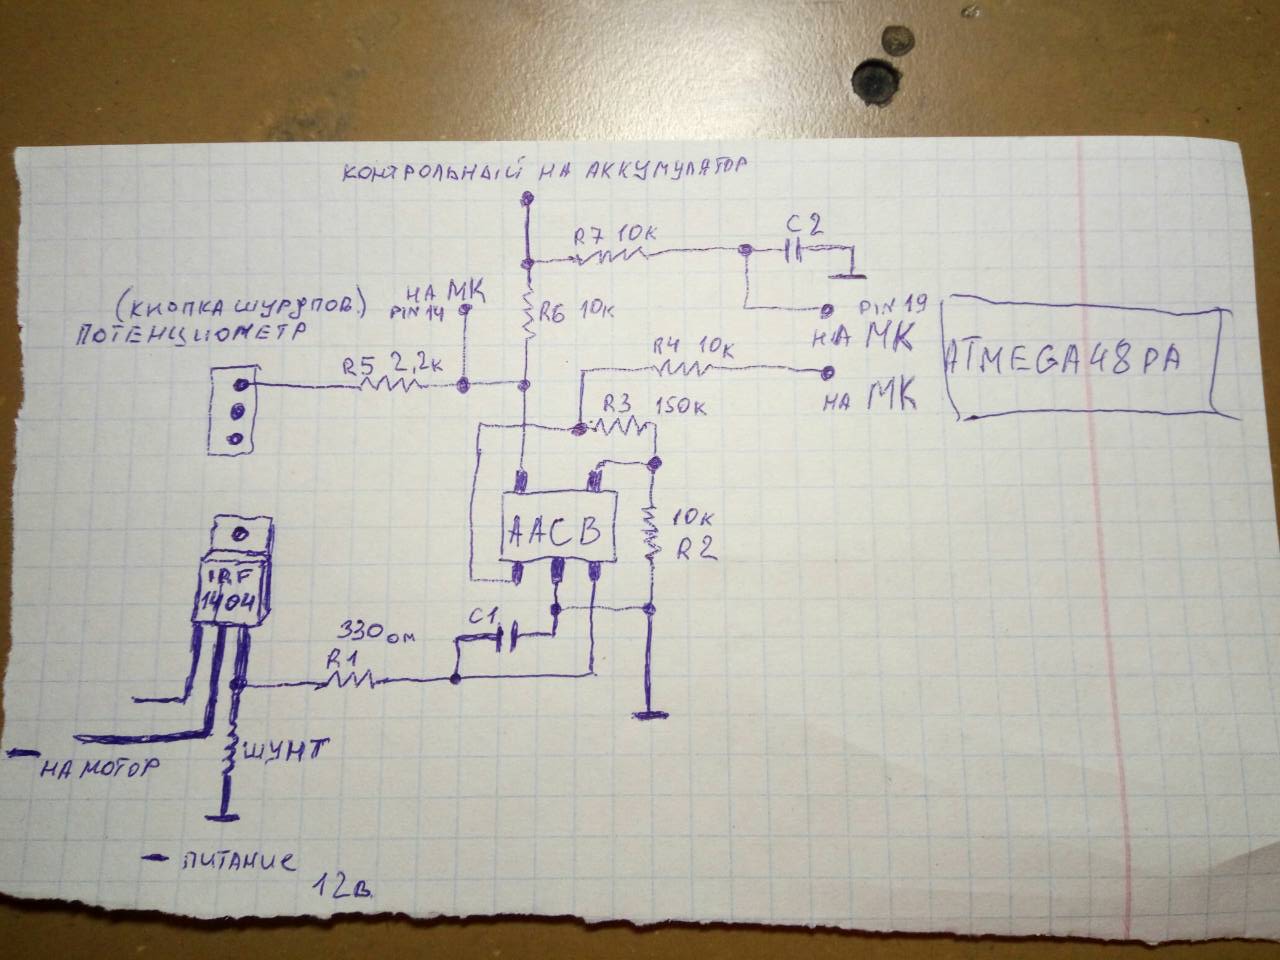 КОНТРОЛЬНЫЙ НА АККУМУЛЯТОР
R7 10к
C2
(КНОПКА ШУРУПОВ.)
ПОТЕНЦИОМЕТР
НА МК
PIN 14
R6 10к
PIN 19
НА МК
R5 2,2к
R4 10к
НА МК
ATMEGA48PA
R3 150к
AACB
10к
R2
IRF
1404
C1
330 ом
R1
ШУНТ
— НА МОТОР
— ПИТАНИЕ
12в.